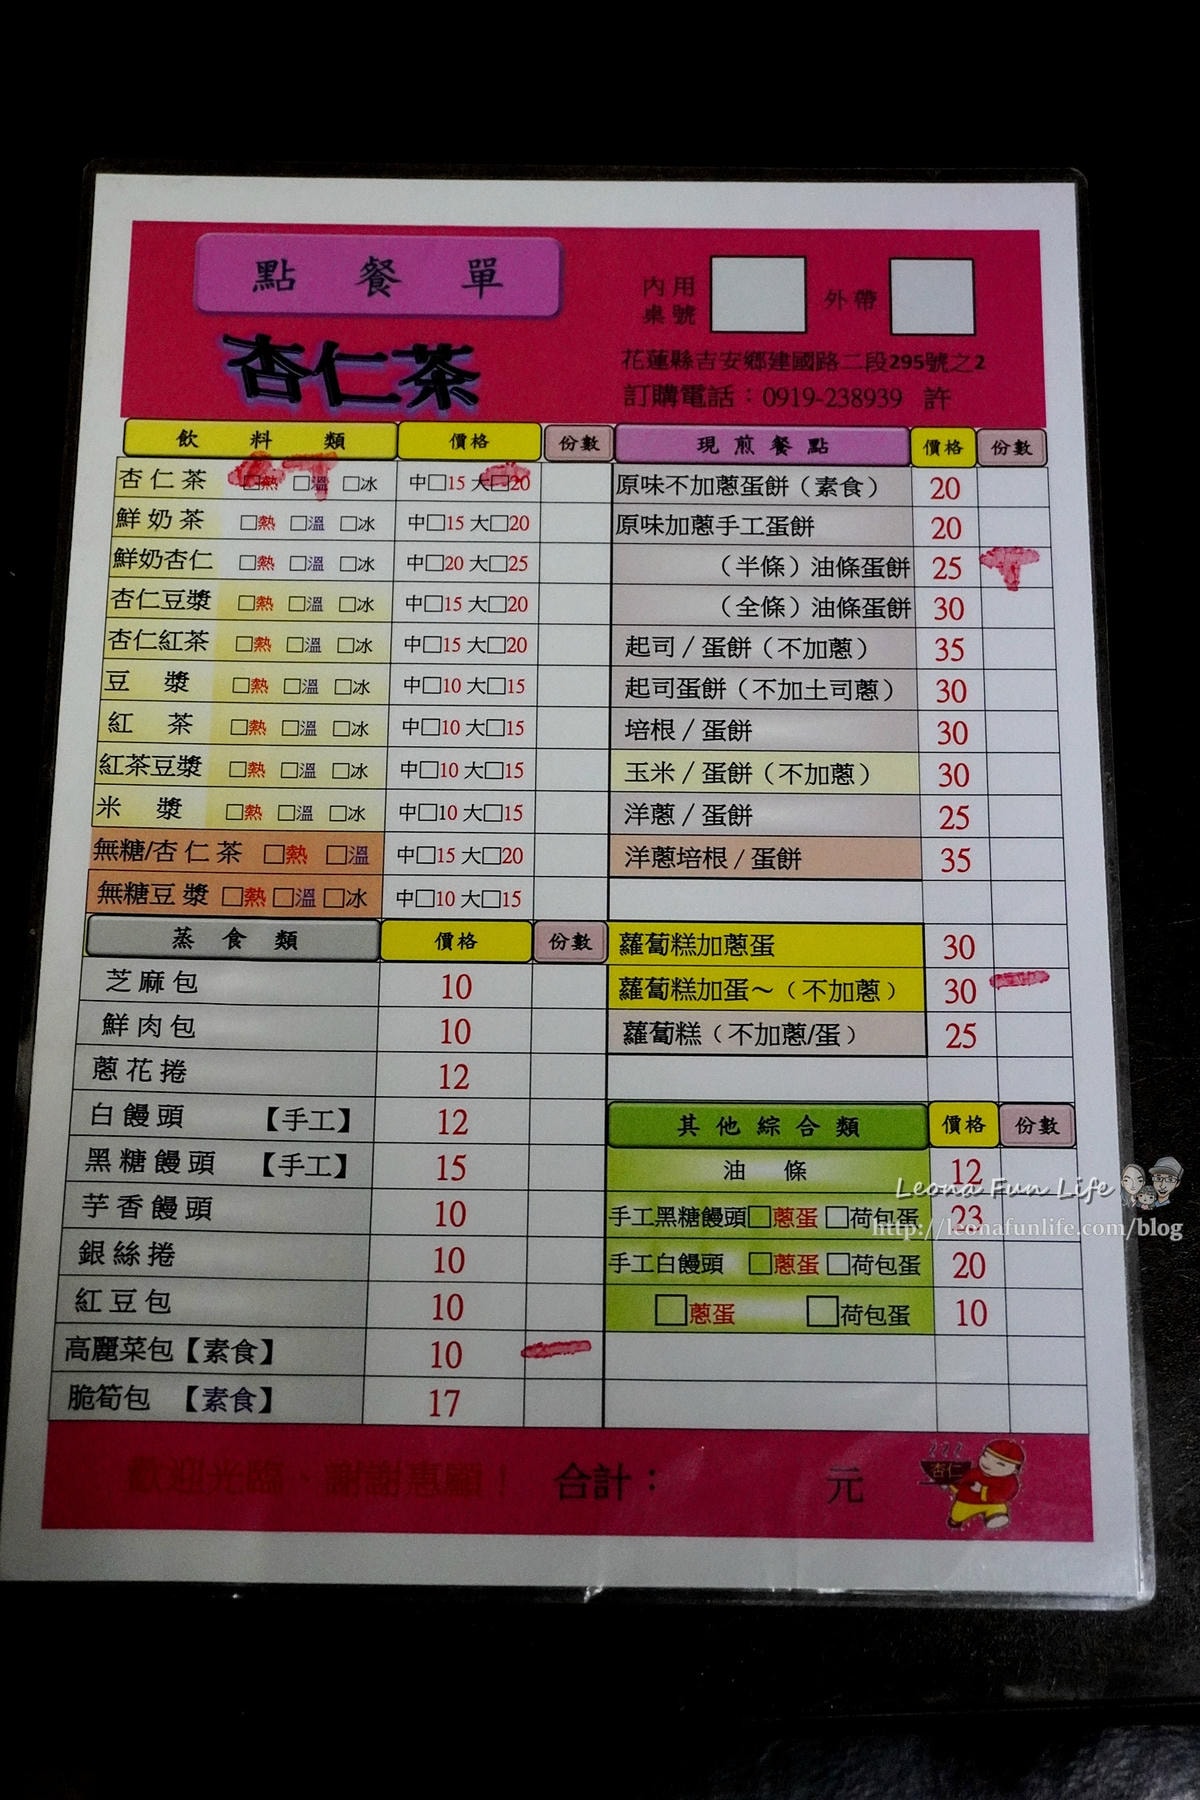 點餐單
杏仁茶
內用
桌號
外帶
花蓮縣吉安鄉建國路二段295號之2
訂購電話：0919-238939 許
飲料類 價格 份數
杏仁茶 □熱 □溫 □冰 中□15 大□20
鮮奶茶 □熱 □溫 □冰 中□15 大□20
鮮奶杏仁 □熱 □溫 □冰 中□20 大□25
杏仁豆漿 □熱 □溫 □冰 中□15 大□20
杏仁紅茶 □熱 □溫 □冰 中□15 大□20
豆漿 □熱 □溫 □冰 中□10 大□15
紅茶 □熱 □溫 □冰 中□10 大□15
紅茶豆漿 □熱 □溫 □冰 中□10 大□15
米漿 □熱 □溫 □冰 中□10 大□15
無糖/杏仁茶 □熱 □溫 中□15 大□20
無糖豆漿 □熱 □溫 □冰 中□10 大□15
蒸食類 價格 份數
芝麻包 10
鮮肉包 10
蔥花捲 12
白饅頭 【手工】 12
黑糖饅頭 【手工】 15
芋香饅頭 10
銀絲捲 10
紅豆包 10
高麗菜包【素食】 10
脆筍包 【素食】 17
現煎餐點 價格 份數
原味不加蔥蛋餅（素食） 20
原味加蔥手工蛋餅 20
（半條）油條蛋餅 25
（全條）油條蛋餅 30
起司/蛋餅（不加蔥） 35
起司蛋餅（不加土司蔥） 30
培根/蛋餅 30
玉米/蛋餅（不加蔥） 30
洋蔥/蛋餅 25
洋蔥培根/蛋餅 35
蘿蔔糕加蔥蛋 30
蘿蔔糕加蛋～（不加蔥） 30
蘿蔔糕（不加蔥/蛋） 25
其他綜合類 價格 份數
油條 12
手工黑糖饅頭□蔥蛋 □荷包蛋 23
手工白饅頭 □蔥蛋 □荷包蛋 20
□蔥蛋 □荷包蛋 10
歡迎光臨、謝謝惠顧！ 合計： 元
杏仁
Leona Fun Life
http://leonafunlife.com/blog